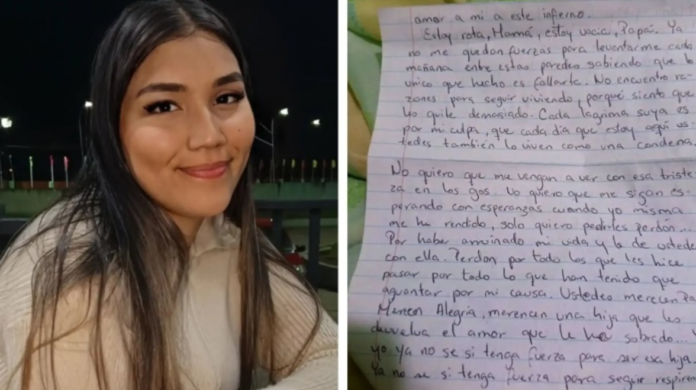 amor a mi a este infierno.
Estoy rota, Mamá, estoy vacia, Papá. Ya
no me quedan fuerzas para levantarme cada
mañana entre estas paredes sabiendo que lo
unico que hecho es fallarte. No encuentro ra-
zones para seguir viviendo, porque siento que
yo quite demasiado. Cada lagrima suya es
por mi culpa, que cada dia que estoy aqui us-
tedes tambien lo viven como una condena.
No quiero que me vengan a ver con esa triste
za en los ojos. No quiero que me sigan es
perando con esperanzas cuando yo misma
me he rendido, solo quiero pedirles perdon...
Por haber arruinado mi vida y la de ustedes
con ella. Perdon por todo los que les hice
pasar por todo lo que han tenido que
aguantar por mi causa. Ustedes merecen
Merecen Alegria, merencen una hija que les
devuelva el amor que le ha sobrado...
yo ya no se si tenga fuerza para ser esa hija.
Ya no se si tenga fuerza para seguir respiran